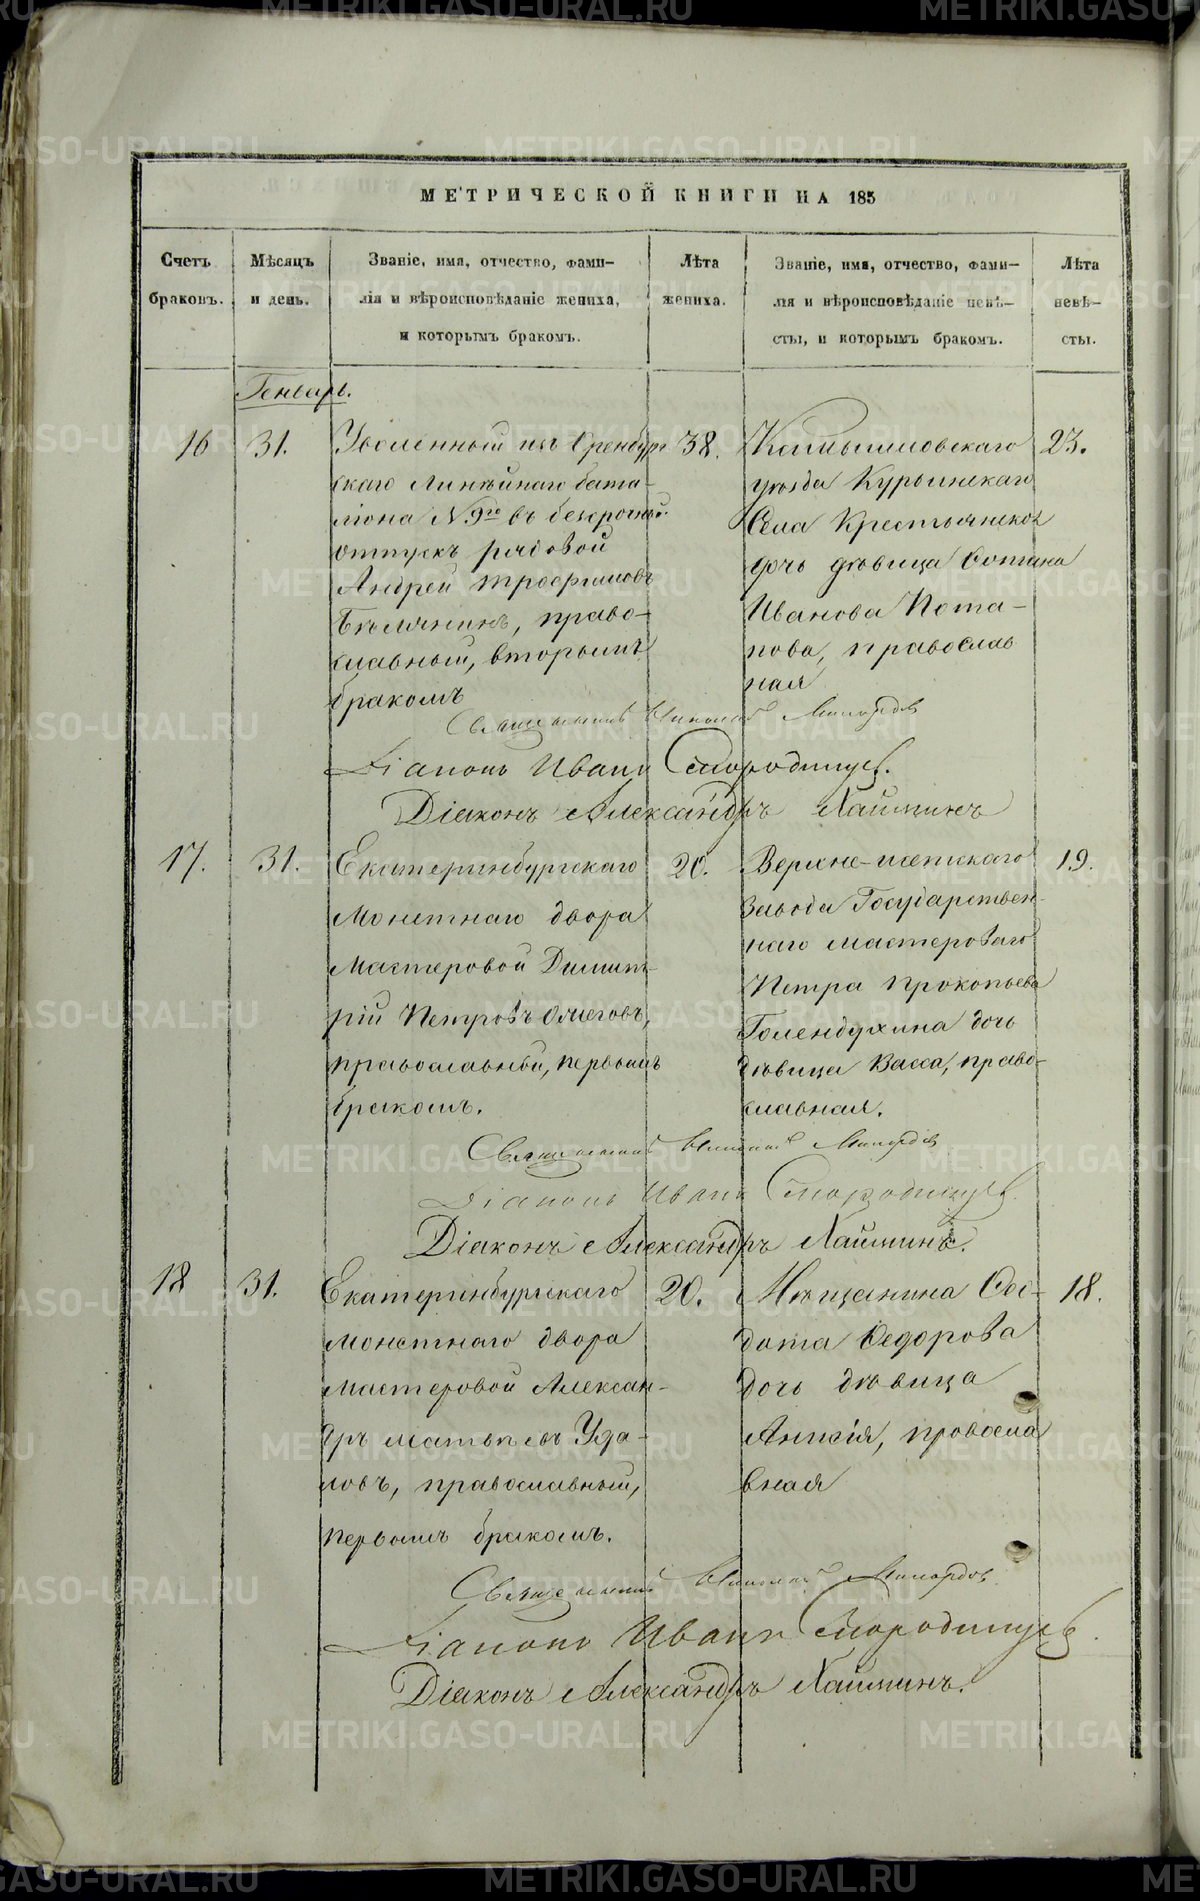 МЕТРИЧЕСКОЙ КНИГИ НА 185
Счетъ браковъ.
Мѣсяцъ и день.
Званіе, имя, отчество, фами-
лія и вѣроисповѣданіе жениха,
и которымъ бракомъ.
Лѣта жениха.
Званіе, имя, отчество, фами-
лія и вѣроисповѣданіе невѣ-
сты, и которымъ бракомъ.
Лѣта невѣ-
сты.
Генварь.
16
31.
Уволенный изъ Оренбург
скаго Линѣйнаго бата-
ліона N. 9го въ безсрочный
отпускъ рядовой
Андрей Трофимовъ
Бѣлянинъ, право-
славный, вторымъ
бракомъ
38.
Камышловскаго
уѣзда Курьинскаго
Села Крестьянская
дочь дѣвица
Иванова Пота-
пова, православ
ная
23.
Священникъ Николай
Діаконъ Иванъ Смородинцев.
Діаконъ Александръ Хайминъ
17.
31.
Екатеринбургскаго
Монетнаго двора
Мастеровой Димит-
рій Петровъ Ожеговъ,
православный, первымъ
бракомъ.
20.
Верхне-исетскаго
завода Государствен-
наго мастероваго
Петра Прокопьева
Голендухина дочь
дѣвица Васса, право-
славная.
19.
Священникъ Николай
Діаконъ Иванъ Смородинцев.
Діаконъ Александръ Хайминъ.
18
31.
Екатеринбургскаго
монетнаго двора
мастеровой Алексан-
дръ Матвѣевъ Уда-
ловъ, православный,
первымъ бракомъ.
20.
Мѣщанина Ѳео-
дота Ѳедорова
дочь дѣвица
Анисія, правосла
вная
18.
Священникъ Николай
Діаконъ Иванъ Смородинцев.
Діаконъ Александръ Хайминъ.
METRIKI.GASO-URAL.RU